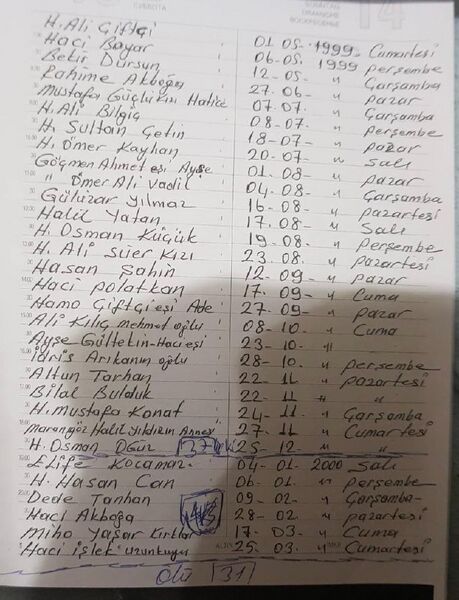 H. Ali Çiftçi 01-05-1999 Cumartesi
Hacı Bayar 06-05-1999 perşembe
Bekir Dursun 12-05- " Çarşamba
Rahime Akboğa 27-06- " pazar
Mustafa Güçlükızı Hatice 07-07- " Çarşamba
H. Ali Bilgiç 08-07- " perşembe
H. Sultan Çetin 18-07- " pazar
H. Ömer Kayhan 20-07 " Salı
Göçmen Ahmet eşi Ayşe 01-08- " pazar
" Ömer Ali Vadil 04-08- " Çarşamba
Gülüzar Yılmaz 16-08- " pazartesi
Halil Yatan 17.08- " Salı
H. Osman Küçük 19.08. " perşembe
H. Ali Süer Kızı 23.08 " pazartesi
Hasan Şahin 12-09- " pazar
Hacı polatkan 17-09- " Cuma
Hamo Çiftçi eşi Ade 27-09- " pazar
Ali Kılıç mehmet oğlu 08-10- " Cuma
Ayşe Gültekin-Hacı eşi 23-10- " "
İdris Arıkanın oğlu 28-10. " perşembe
Altun Tarhan 22-11- " pazartesi
Bilal Bulduk 22-11 " "
H. Mustafa Konat 24-11- " Çarşamba
Marangoz Halil Yıldızın Annesi 27-11 " Cumartesi
H. Osman OĞUZ 37 25-12- " "
Elife Kocamaz. 04-01-2000 Salı
H. Hasan Can 06-01- " perşembe
Dede Tanhan 09-02- " Çarşamba-
Hacı Akboğa 28-02- " pazartesi
Miho Yaşar Kırklar 17-03- " Cuma
Hacı işlek uzunkuyu 25-03. " Cumartesi
Ölü 31